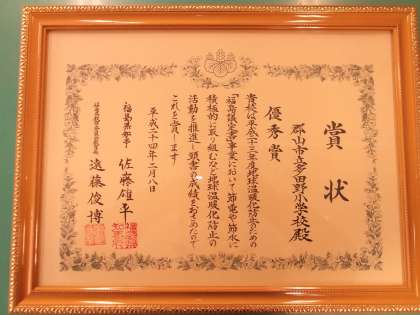 賞状
郡山市立多田野小学校殿
優秀賞
貴校は平成二十三年度地球温暖化防止のための
「福島議定書」事業において節電や節水に
積極的に取り組むなど地球温暖化防止の
活動を推進し頭書の成績をおさめたので
これを賞します
平成二十四年二月八日
福島県知事 佐藤雄平
遠藤俊博